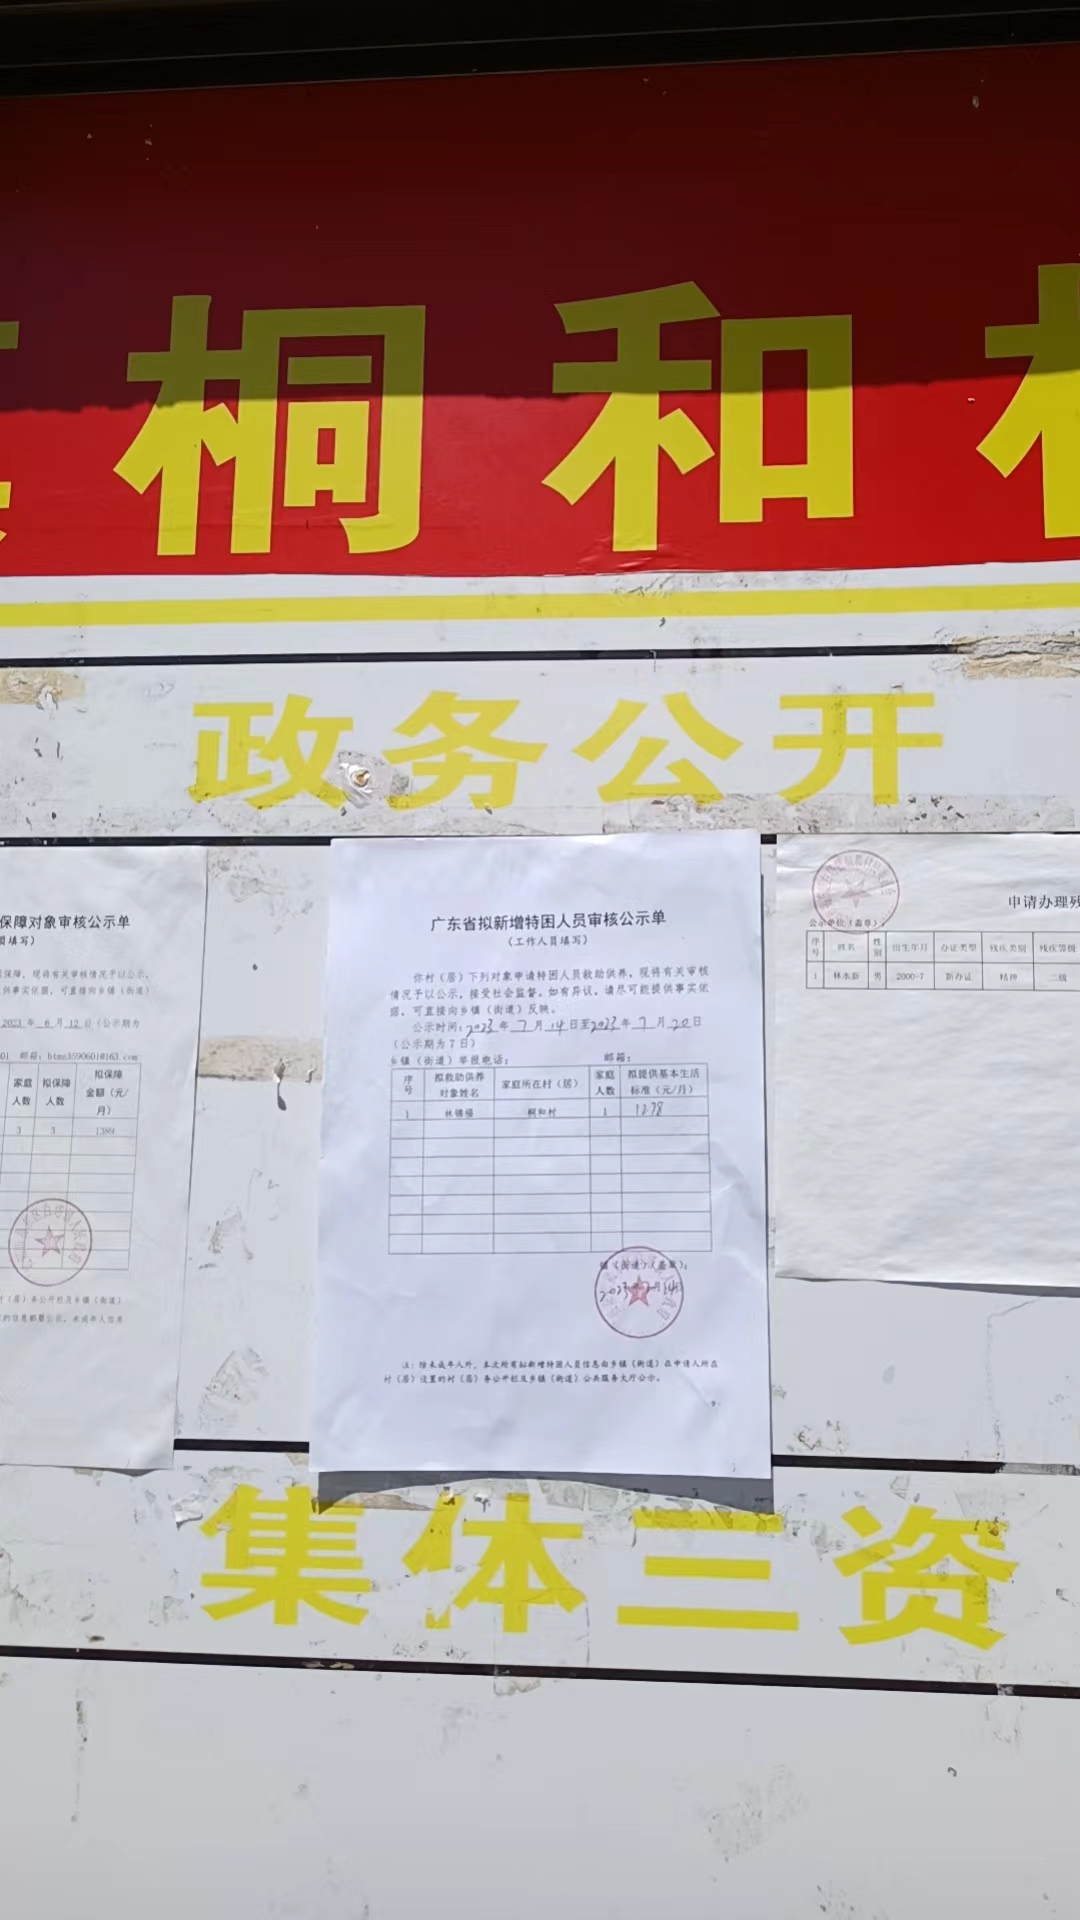 桐和
政务公开
保障对象审核公示单
填写)
保障,现将有关审核情况予以公示,
供事实依据,可直接向乡镇(街道)
2023年6月12日(公示期为
01 邮箱:btmz3590601@163.com
家庭人数 拟保障人数 拟保障金额(元/月)
3 3 1389
村(居)务公开栏及乡镇(街道)
广东省拟新增特困人员审核公示单
(工作人员填写)
你村(居)下列对象申请特困人员救助供养,现将有关审核
情况予以公示,接受社会监督。如有异议,请尽可能提供事实依
据,可直接向乡镇(街道)反映。
公示时间:2023年7月14日至2023年7月20日
(公示期为7日)
乡镇(街道)举报电话: 邮箱:
序号 拟救助供养对象姓名 家庭所在村(居) 家庭人数 拟提供基本生活标准(元/月)
1 林锦福 桐和村 1 1278
镇(街道)(盖章):
2023年7月14日
注:除未成年人外,本次所有拟新增特困人员信息由乡镇(街道)在申请人所在
村(居)设置的村(居)务公开栏及乡镇(街道)公共服务大厅公示。
申请办理残
公示单位(盖章):
序号 姓名 性别 出生年月 办证类型 残疾类别 残疾等级
1 林水新 男 2000-7 新办证 精神 二级
集体三资